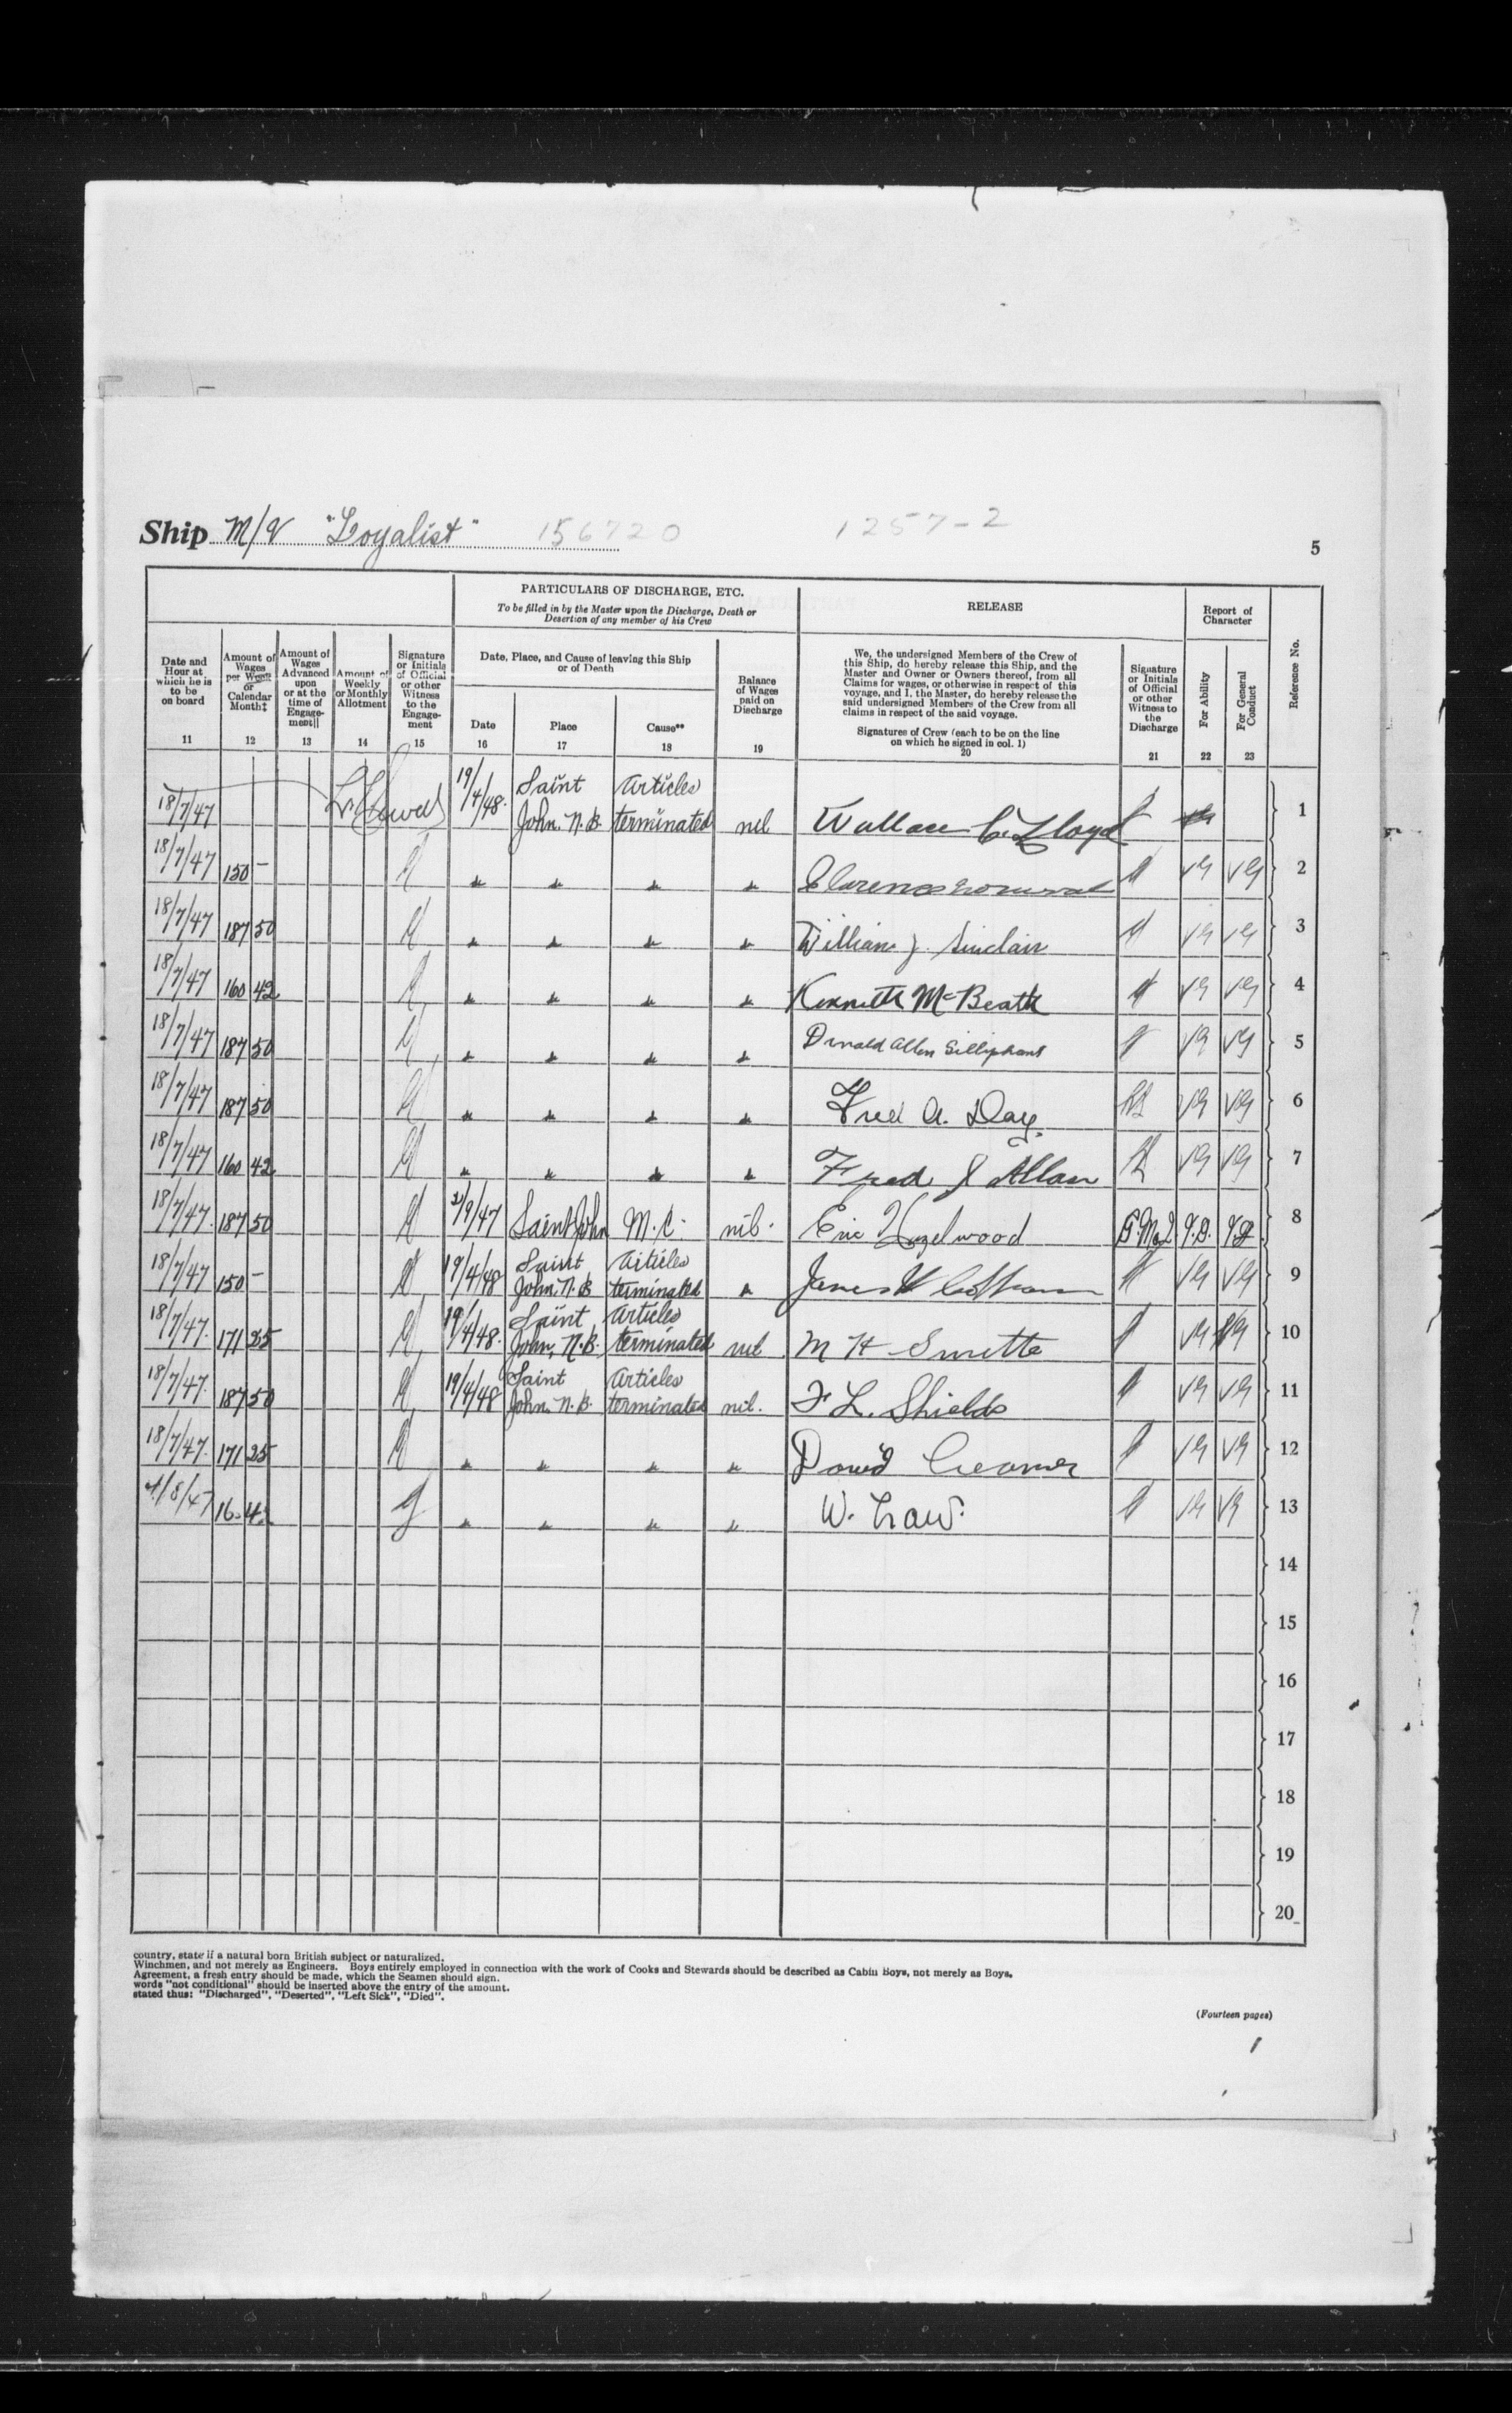 Ship M/V "Loyalist" 156720 1257-2
5
PARTICULARS OF DISCHARGE, ETC.
To be filled in by the Master upon the Discharge, Death or
Desertion of any member of his Crew
RELEASE
Report of
Character
Reference No.
Date and
Hour at
which he is
to be
on board
11
Amount of
Wages
per Week
or
Calendar
Month‡
12
Amount of
Wages
Advanced
upon
or at the
time of
Engage-
ment||
13
Amount of
Weekly
or Monthly
Allotment
14
Signature
or Initials
of Official
or other
Witness
to the
Engage-
ment
15
Date, Place, and Cause of leaving this Ship
or of Death
Date
16
Place
17
Cause**
18
Balance
of Wages
paid on
Discharge
19
We, the undersigned Members of the Crew of
this Ship, do hereby release this Ship, and the
Master and Owner or Owners thereof, from all
Claims for wages, or otherwise in respect of this
voyage, and I, the Master, do hereby release the
said undersigned Members of the Crew from all
claims in respect of the said voyage.
Signatures of Crew (each to be on the line
on which he signed in col. 1)
20
Signature
or Initials
of Official
or other
Witness to
the
Discharge
21
For Ability
22
For General
Conduct
23
18/7/47 19/4/48. Saint John, N.B. Articles terminated nil Wallace C. Lloyd 1
18/7/47 150 – " " " " Clarence VG VG 2
18/7/47 187 50 " " " " William J. Sinclair VG VG 3
18/7/47 160 42 " " " " Kenneth McBeath VG VG 4
18/7/47 187 50 " " " " Donald Allen Silliphant VG VG 5
18/7/47 187 50 " " " " Fred A. Day. VG VG 6
18/7/47 160 42 " " " " Fred J Allan VG VG 7
18/7/47. 187 50 /9/47 Saint John M.C. nil. Eric Hazelwood V.G. V.G. 8
18/7/47 150 – 19/4/48 Saint John, N.B. Articles terminated " James VG VG 9
18/7/47. 171 25 19/4/48. Saint John, N.B. Articles terminated nil M H Smette VG VG 10
18/7/47. 187 50 19/4/48 Saint John, N.B. Articles terminated nil. F L. Shields VG VG 11
18/7/47. 171 25 " " " " David Creamer VG VG 12
4/8/47 " " " " W. Law. VG VG 13
14
15
16
17
18
19
20
country, state if a natural born British subject or naturalized.
Winchmen, and not merely as Engineers. Boys entirely employed in connection with the work of Cooks and Stewards should be described as Cabin Boys, not merely as Boys.
Agreement, a fresh entry should be made, which the Seamen should sign.
words "not conditional" should be inserted above the entry of the amount.
stated thus: "Discharged", "Deserted", "Left Sick", "Died".
(Fourteen pages)